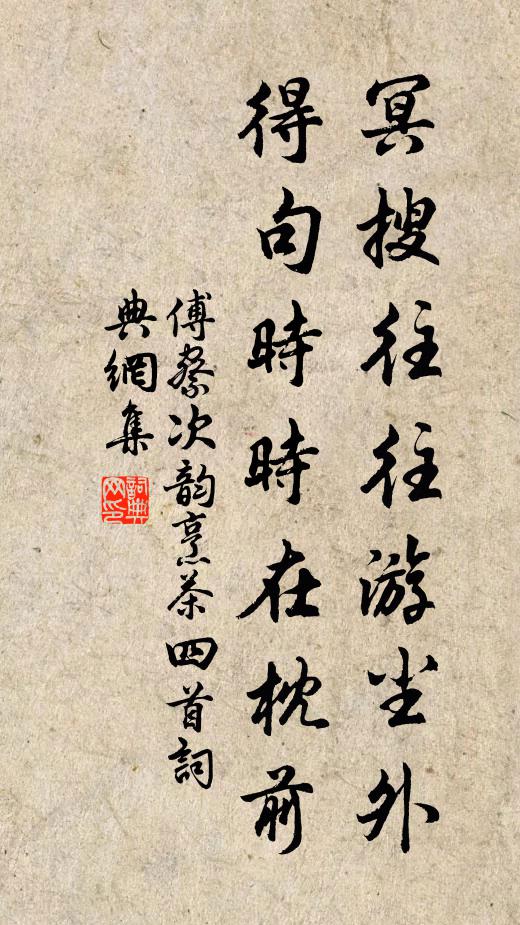 冥搜往往游尘外
得句時時在枕前
傅察次韵烹茶四首詞
典網集
詞典网印